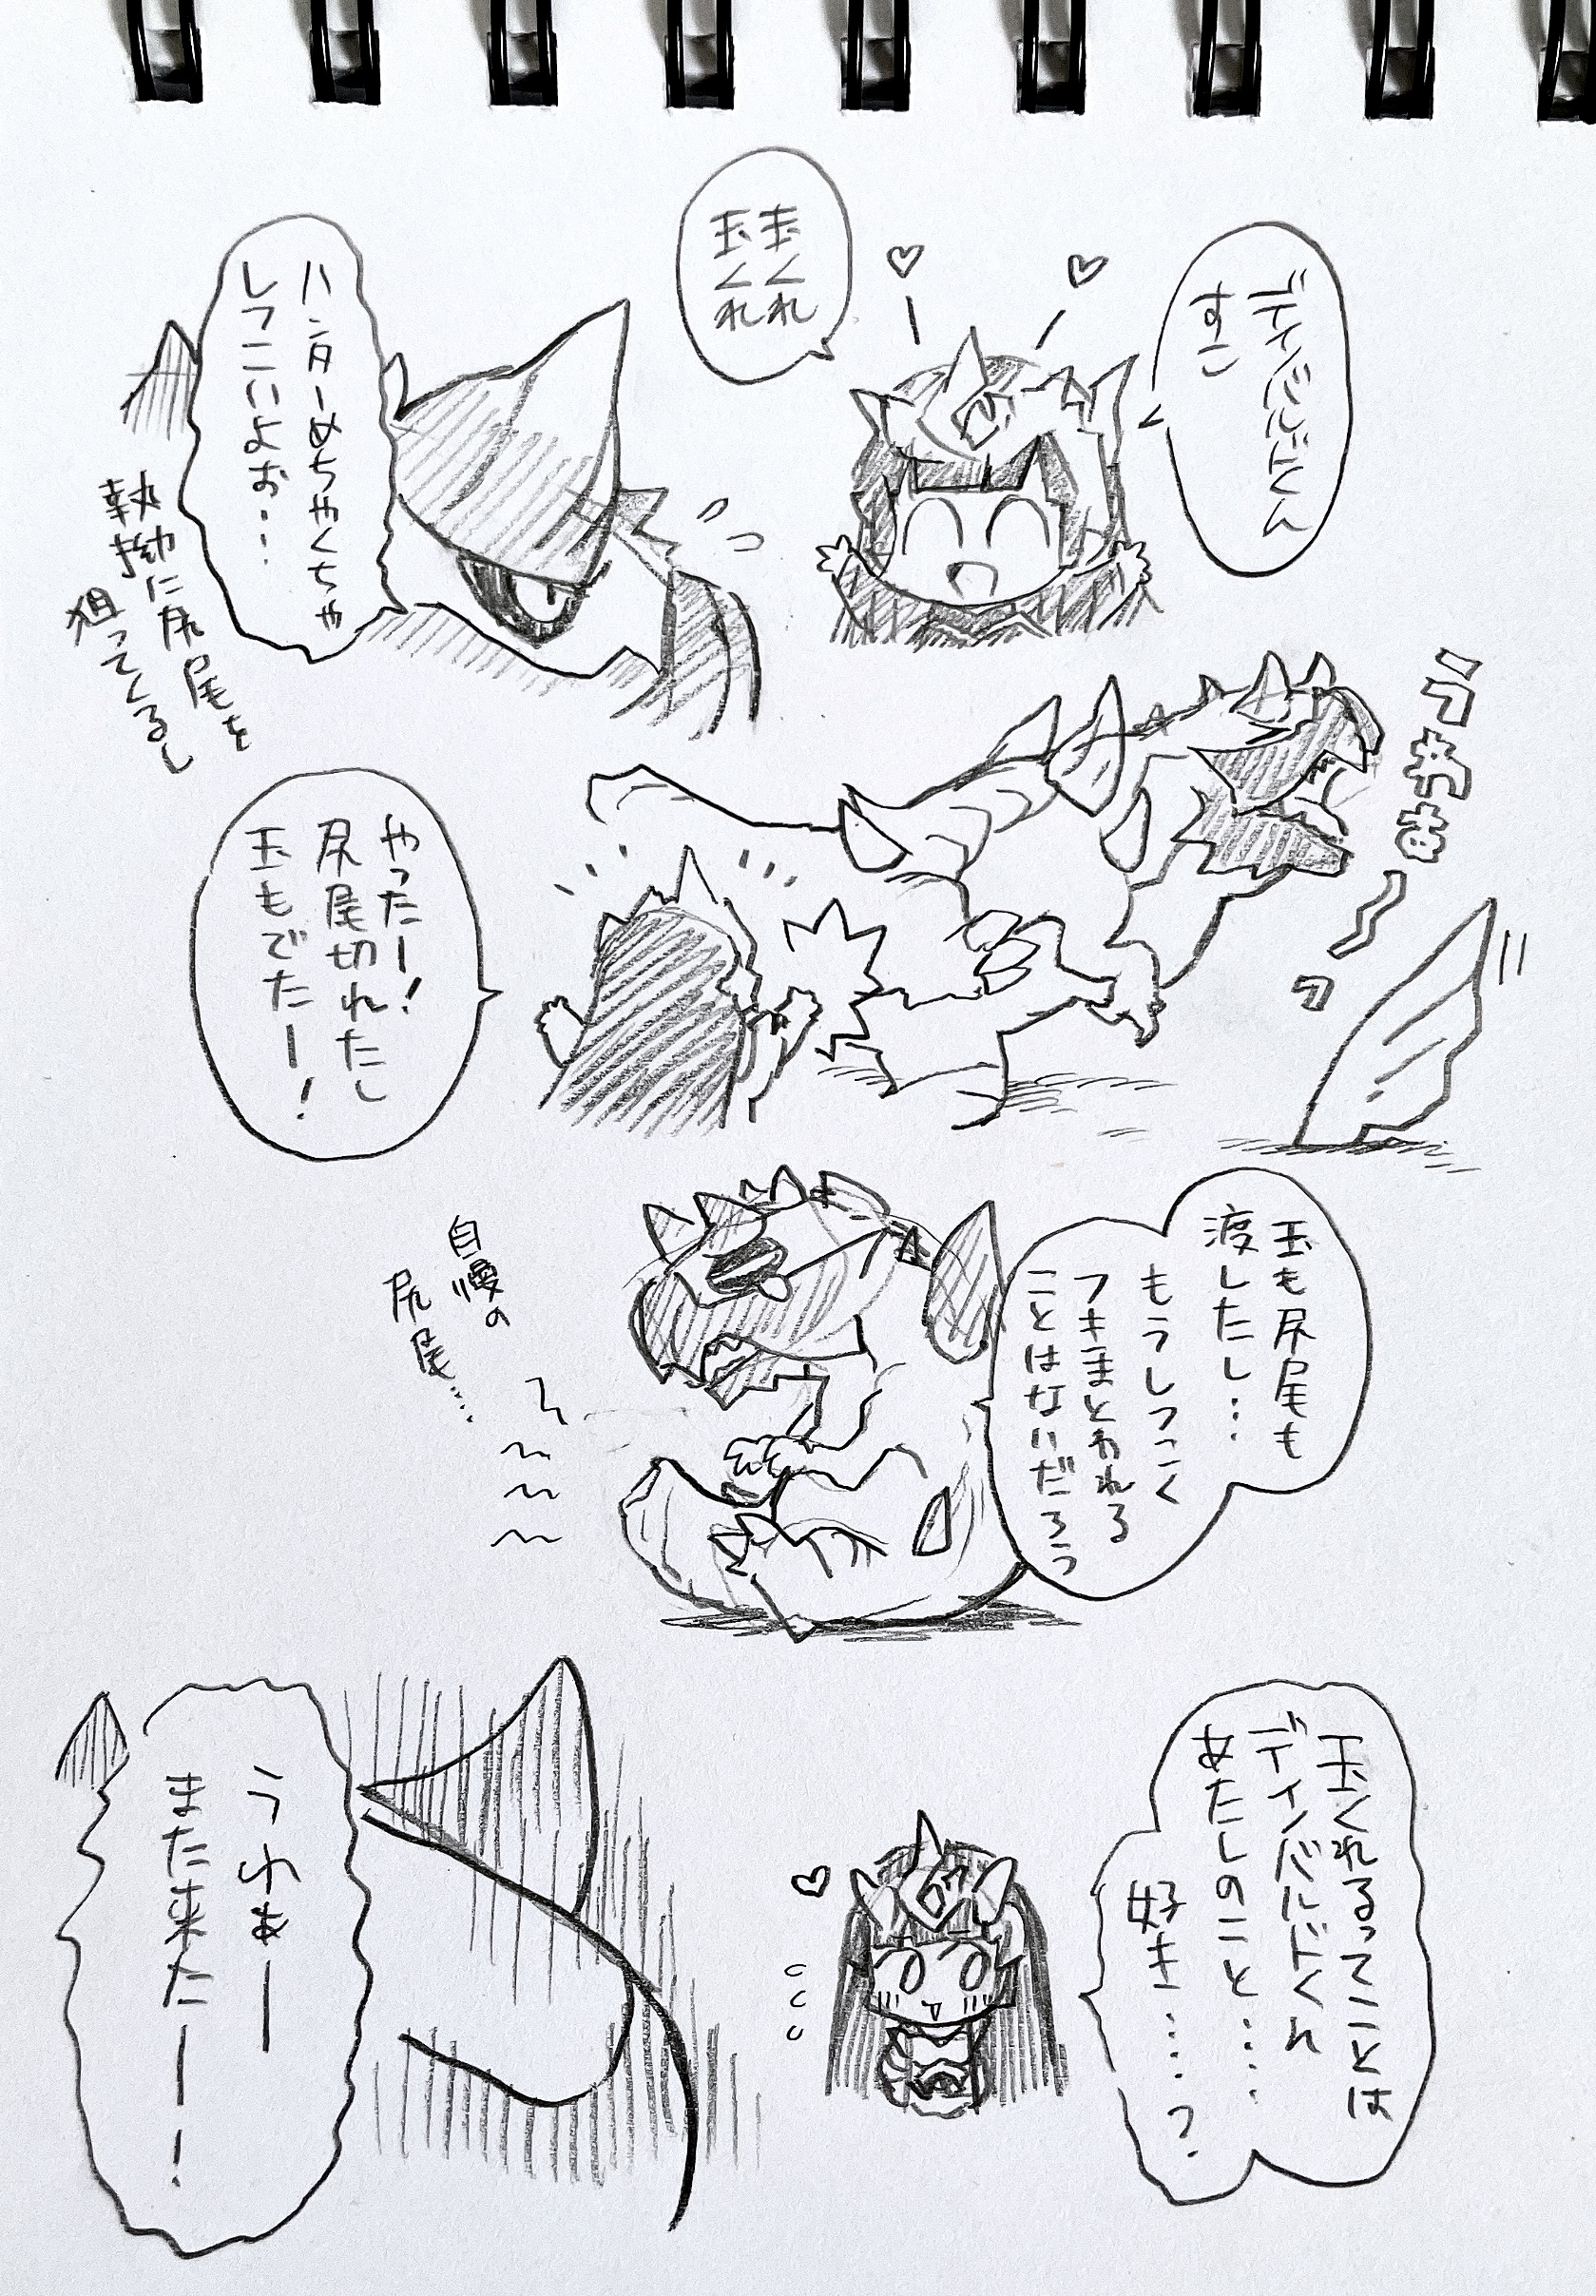 ディノバルドくん
すこ
玉くれ
玉くれ
ハンターめちゃくちゃ
しつこいよぉ…
執拗に尻尾を
狙ってくるし
うぎゃーっ
やったー!
尻尾切れたし
玉もでたー!
玉も尻尾も
渡したし…
もうしつこく
つきまとわれる
ことはないだろう
自慢の
尻尾…
玉くれるってことは
ディノバルドくん
あたしのこと…
好き……?
うわぁー
また来たー!